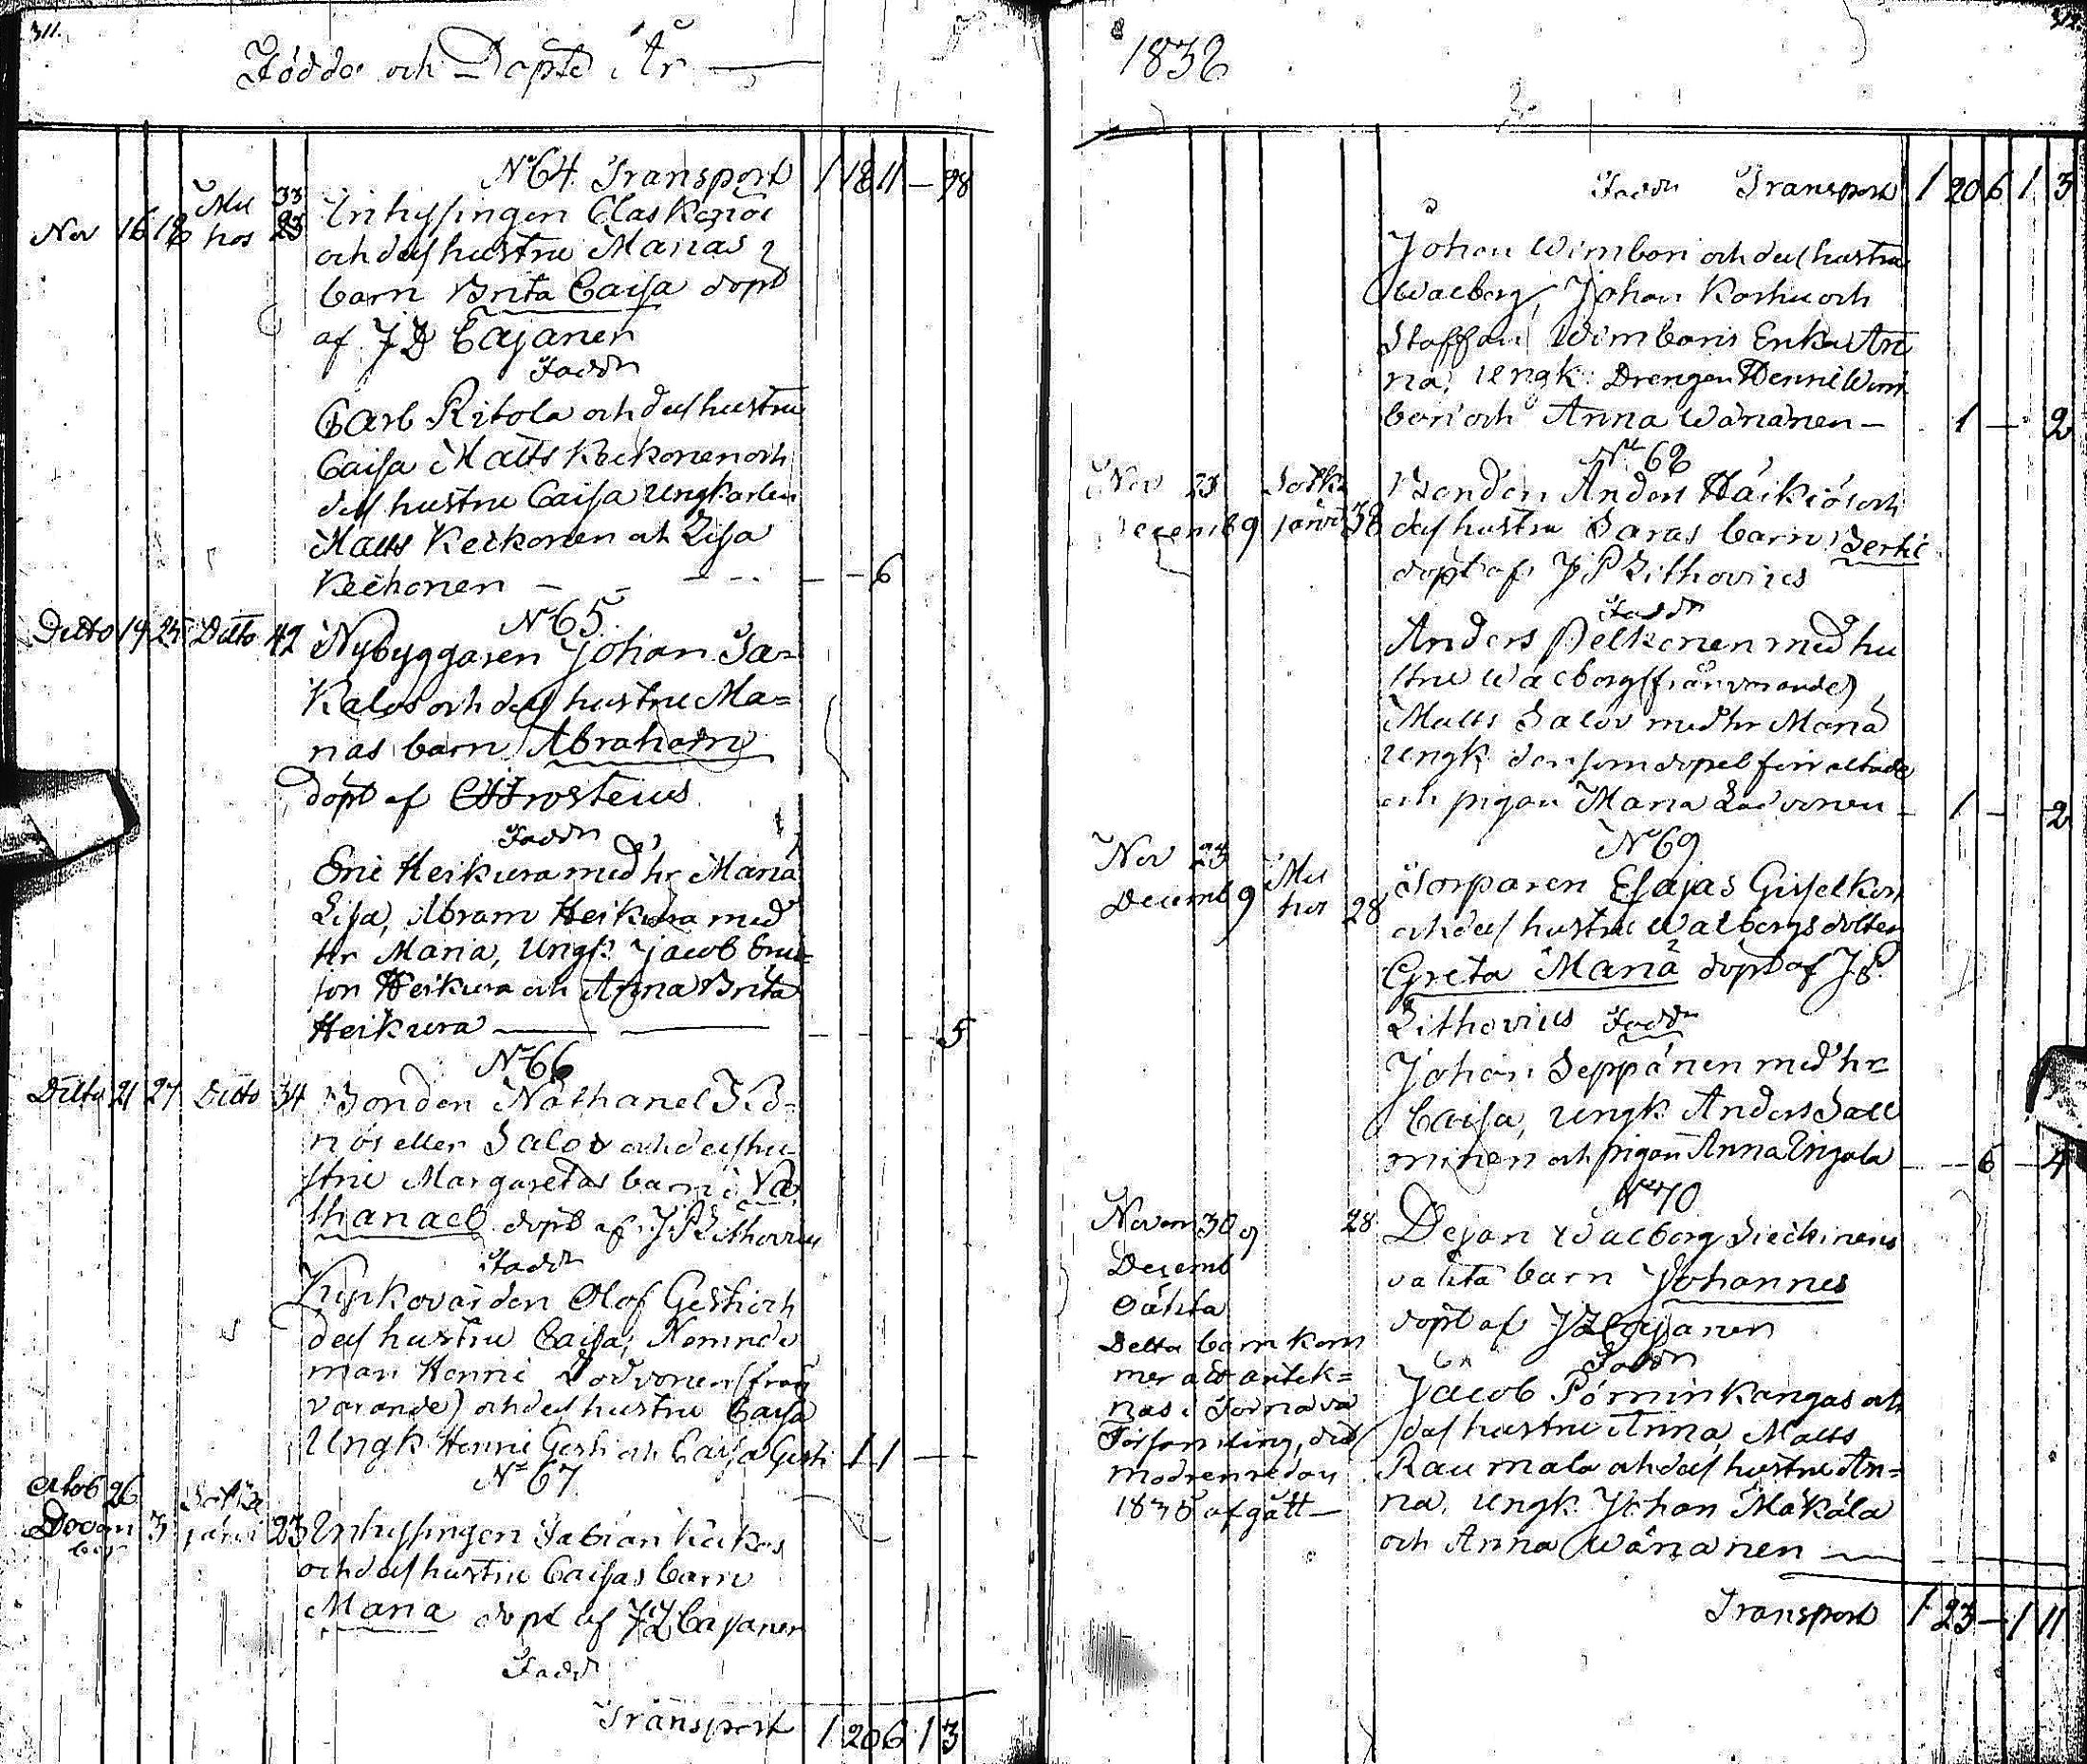 311.
Födde och Döpte i År
N:64. Transport 1 18 11 — 98
Mu 33
Nov 16 18 hos 23 Inhysingen Clas
och dess hustru Marias
barn Brita Caisa döpt
af J D Cajaner
Fadd:r
Carl Ritola och dess hustru
Caisa Matts Keikonen och
dess hustru Caisa Ungkarlen
Matts Keikonen och Lisa
Keihonen — — 6
N:65.
Ditto 19 25 Ditto 42 Nybyggaren Johan Sa=
kalos och dess hustru Ma=
rias barn Abraham
döpt af Frosterus
Fadd:r
Eric Heikura med hr Maria
Lisa, Abram Heikura med
Hr Maria, Ungk: Jacob Erics=
son Heikura och Anna Brita
Heikura — — 5
N:66
Ditto 21 27 Ditto 34 Bonden Nathanel
eller Salos och dess hu
stru Margaretas barn Na
thanael döpt af J P Lithovius
Fadd:r
Kyrkovärden Olof Gerti och
dess hustru Caisa, Nemnde
man Henric Lodvonen (från
varande) och dess hustru Caisa
Ungk: Henric Gerti och Caisa Gerti 1 1 — —
N:67
26 Sotka
Decem 3 järvi 23 Inhysingen Fabian
ber
och dess hustru Caisas barn
Maria döpt af Cajaner
Fadd:r
Transport 1 20 6 1 3
1832
Fadd:r Transport 1 20 6 1 3
Johan Wimbari och dess hustru
Walborg, Johan och
Staffan Wimbaris Enka An
na, Ungk: Drengen Henric Wim
bari och Anna Wänänen — 1 — 2
N:68
Nov 23 Sotka
Decemb 9 järvi 38 Bonden Anders och
dess hustru Saras barn Bertil
döpt af J P Lithovius
Fadd:r
Anders Pelkonen med hu
stru Walborg (frånvarande)
Matts Salos med hr Maria
Ungk: den som dopet förrättade
och pigan Maria Lodvonen 1 — 2
N:69
Nov 23 Mu
Decemb 9 hos 28 Torparen Esajas
och dess hustru Walborgs dotter
Greta Maria döpt af J P.
Lithovius Fadd:r
Johan Seppänen med hr
Caisa, Ungk Anders Sall
minen och pigan Anna — — 6 — 4
N:70
Novem 30 9 28 Dejan Walborg
Decemb
oäkta barn Johannes
Oäkta
döpt af Cajaner
Detta barn kom
Fadd:r
mer att antek=
nas i
Församling, dit
modren redan
afgått —
Jacob Törminkangas och
dess hustru Anna, Matts
Raumala och dess hustru An=
na, Ungk: Johan Mäkälä
och Anna Wänänen —
Transport 1 23 — 1 11